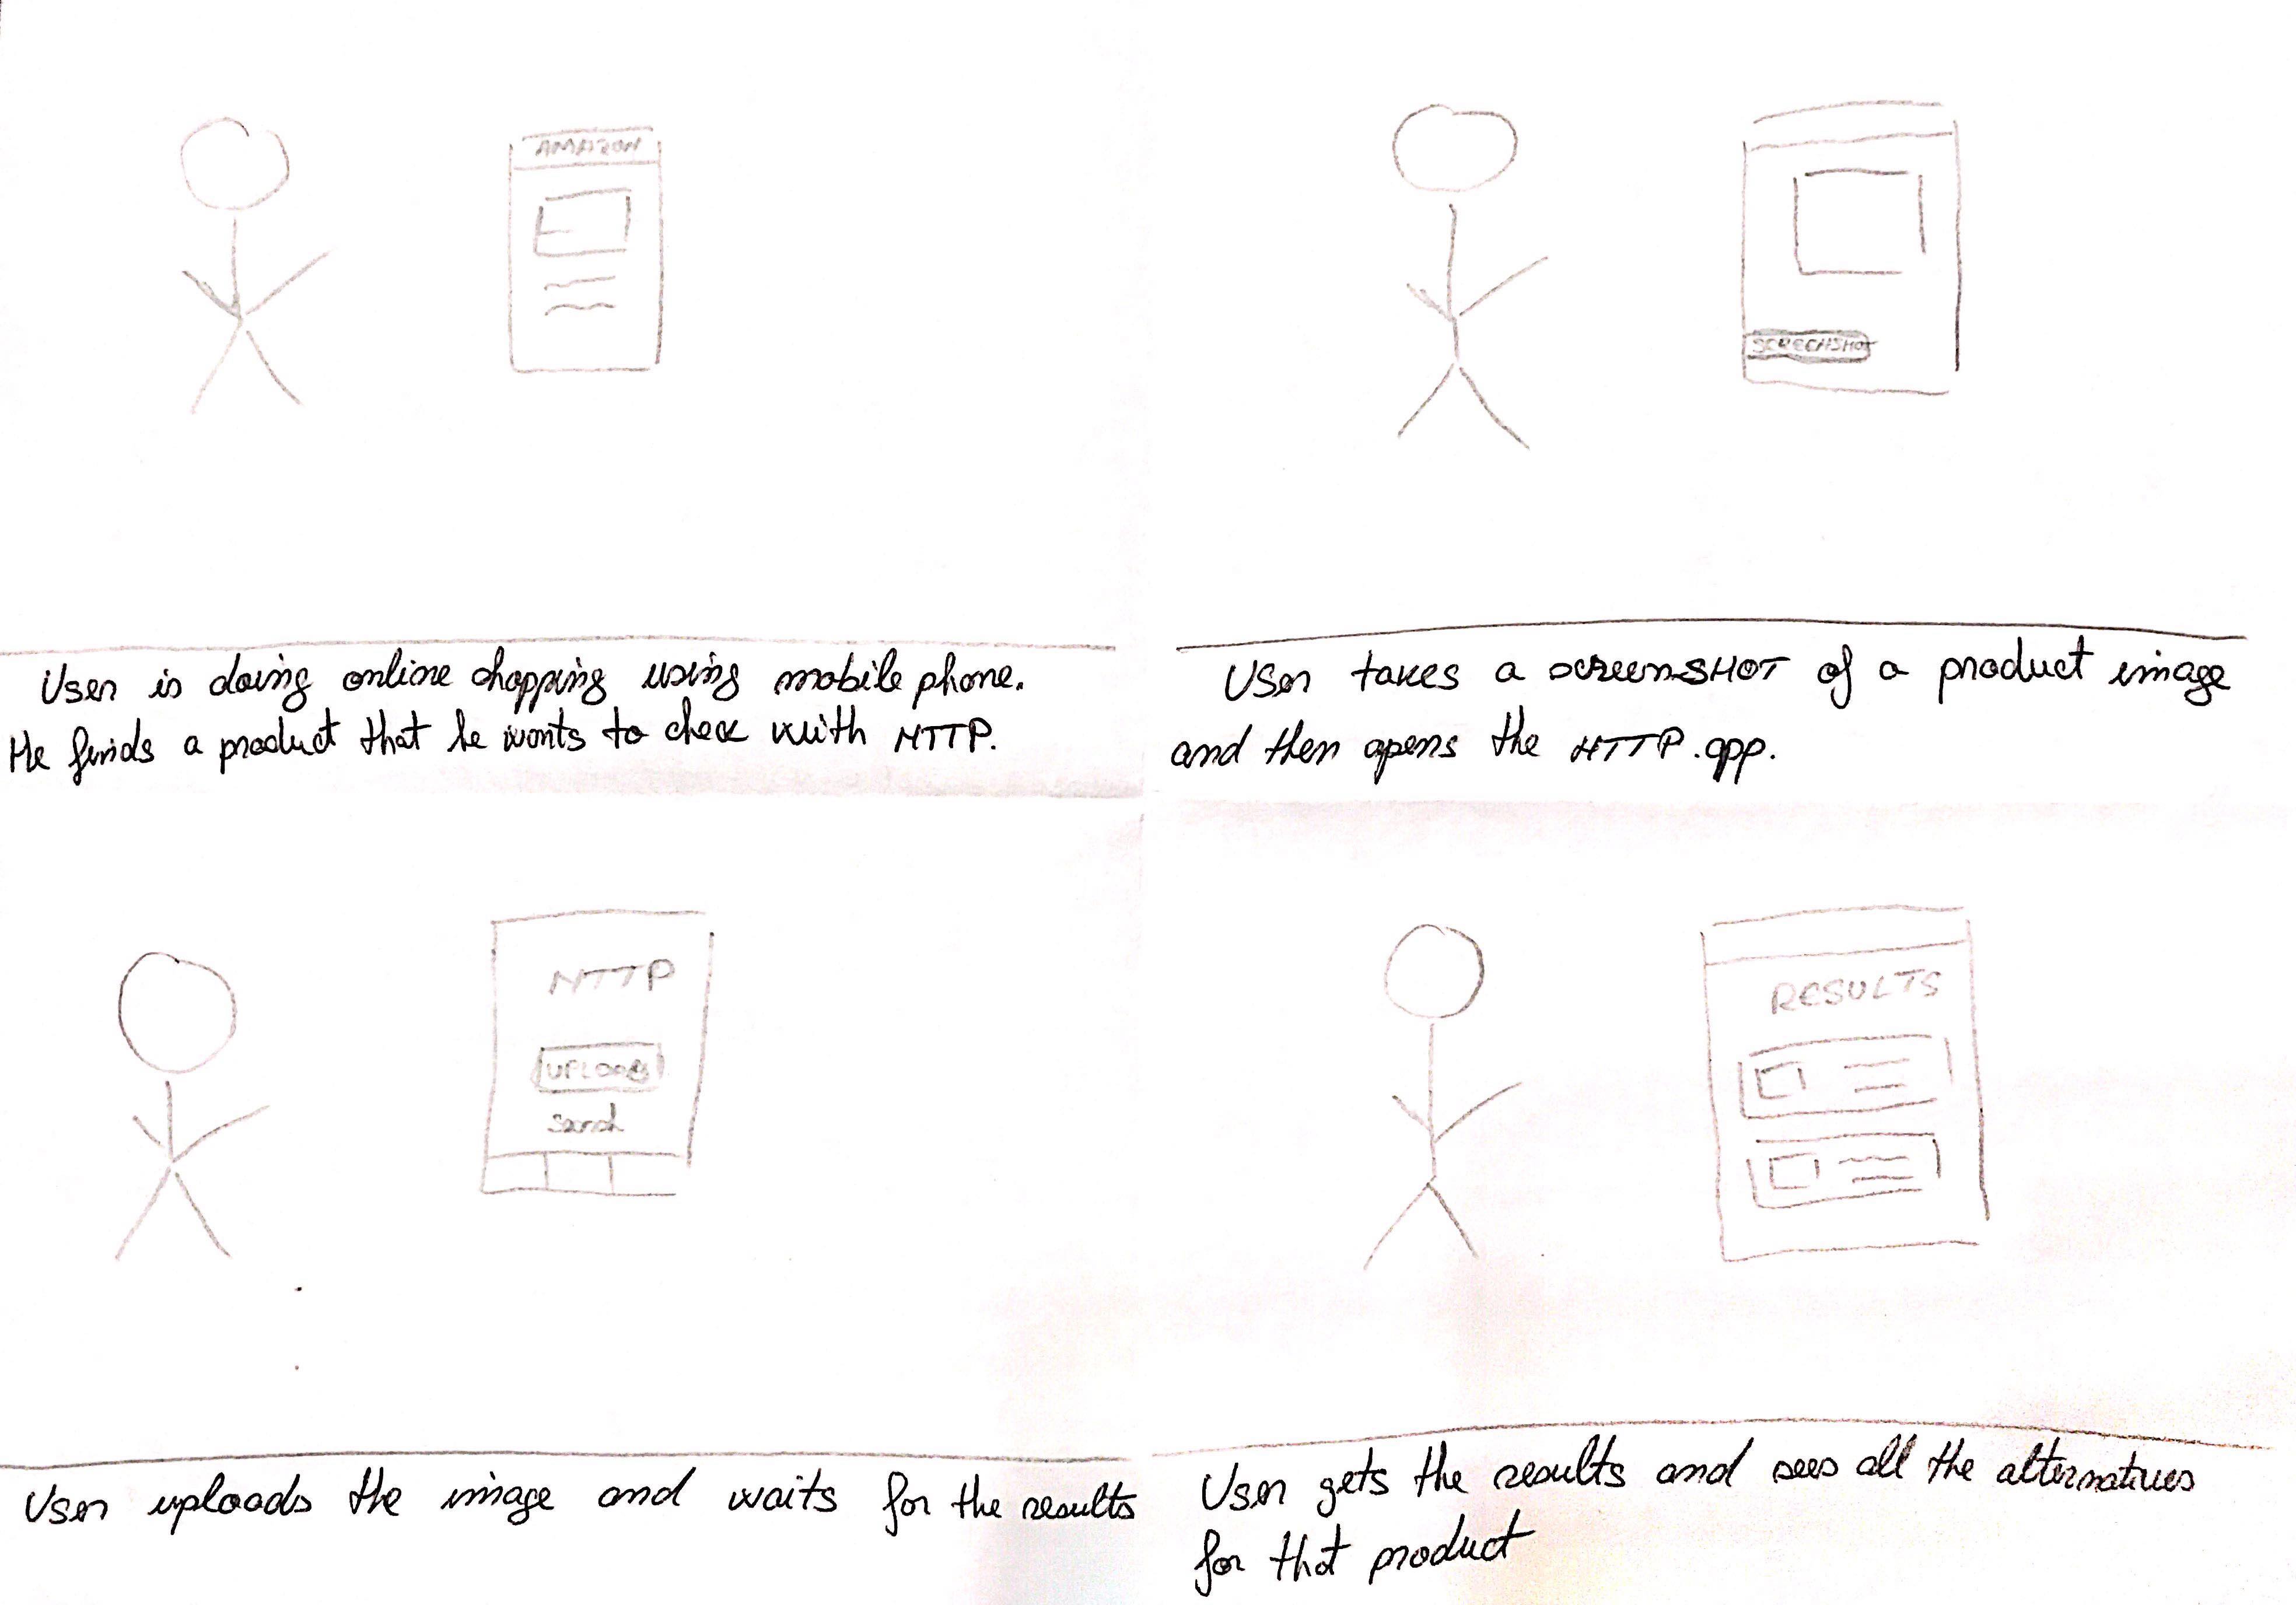 AMAZON
User is doing online shopping using mobile phone.
He finds a product that he wants to check with NTTP.
SCREENSHOT
User takes a screenSHOT of a product image
and then opens the NTTP.app.
NTTP
UPLOAD
Search
User uploads the image and waits for the results
RESULTS
User gets the results and sees all the alternatives
for that product